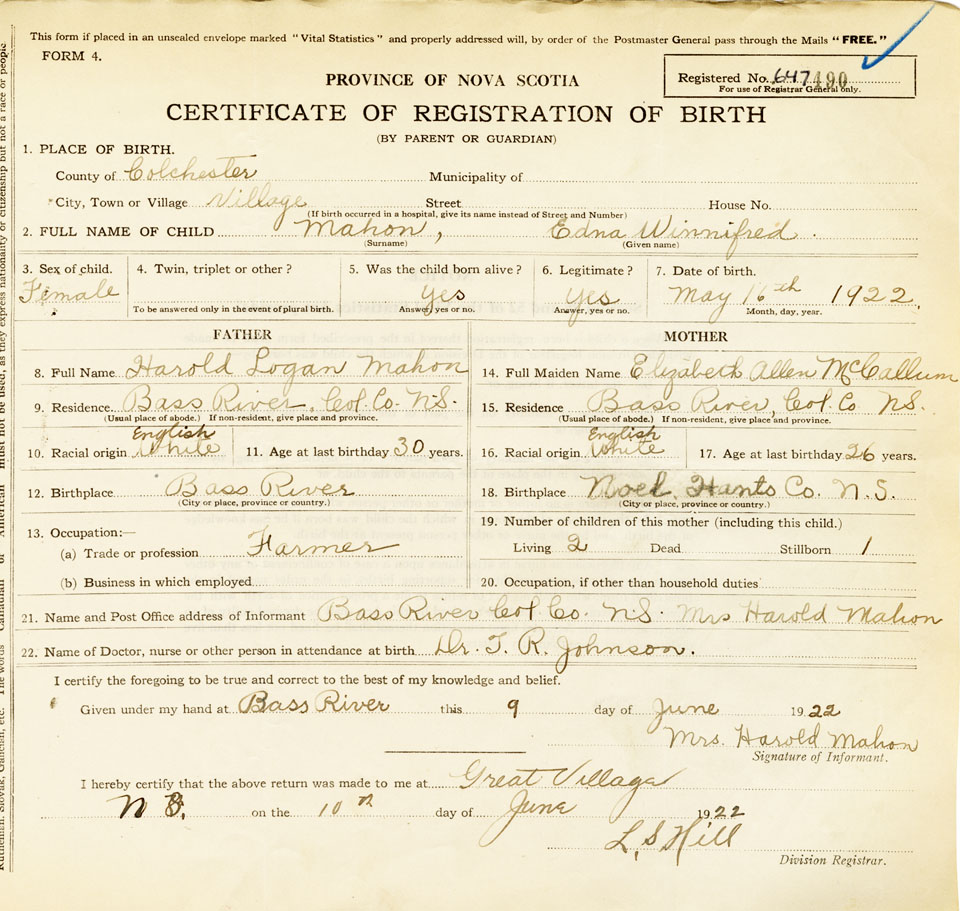 This form if placed in an unsealed envelope marked "Vital Statistics" and properly addressed will, by order of the Postmaster General pass through the Mails "FREE."
FORM 4.
PROVINCE OF NOVA SCOTIA
Registered No. 647 490
For use of Registrar General only.
CERTIFICATE OF REGISTRATION OF BIRTH
(BY PARENT OR GUARDIAN)
1. PLACE OF BIRTH.
County of Colchester Municipality of
City, Town or Village Village Street House No.
(If birth occurred in a hospital, give its name instead of Street and Number)
2. FULL NAME OF CHILD Mahon, Edna Winnifred.
(Surname) (Given name)
3. Sex of child. 4. Twin, triplet or other? 5. Was the child born alive? 6. Legitimate? 7. Date of birth.
Female yes yes May 16th 1922.
To be answered only in the event of plural birth. Answer, yes or no. Answer, yes or no. Month, day, year.
FATHER MOTHER
8. Full Name Harold Logan Mahon 14. Full Maiden Name Elizabeth Allen McCallum
9. Residence Bass River, Col. Co. N.S. 15. Residence Bass River, Col. Co N.S.
(Usual place of abode.) If non-resident, give place and province. (Usual place of abode.) If non-resident, give place and province.
English English
10. Racial origin White 11. Age at last birthday 30 years. 16. Racial origin White 17. Age at last birthday 26 years.
12. Birthplace Bass River 18. Birthplace Noel, Hants Co. N.S.
(City or place, province or country.) (City or place, province or country.)
13. Occupation:— 19. Number of children of this mother (including this child.)
(a) Trade or profession Farmer Living 2 Dead Stillborn 1
(b) Business in which employed 20. Occupation, if other than household duties
21. Name and Post Office address of Informant Bass River Col. Co. N.S. Mrs Harold Mahon
22. Name of Doctor, nurse or other person in attendance at birth Dr. T. R. Johnson.
I certify the foregoing to be true and correct to the best of my knowledge and belief.
Given under my hand at Bass River this 9 day of June 1922
Mrs. Harold Mahon
Signature of Informant.
I hereby certify that the above return was made to me at Great Village
N S. on the 10th day of June 1922
L. S Hill
Division Registrar.